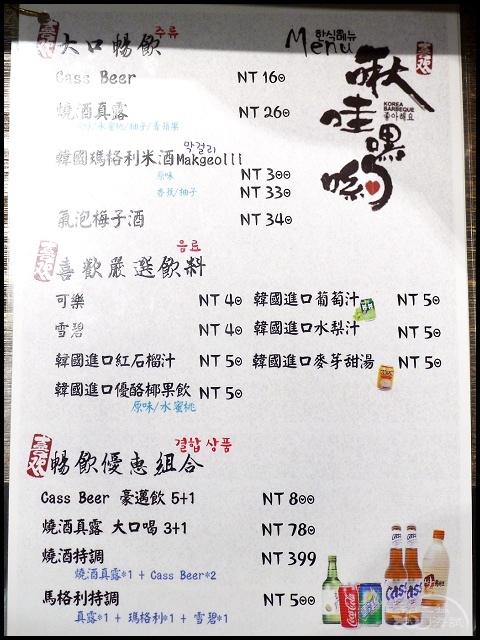 한식메뉴
Menu
啾哇嘿喲
KOREA
BARBEQUE
좋아해요
喜欢
喜欢
大口暢飲 주류
Cass Beer NT 160
燒酒真露 NT 260
原味/水蜜桃/柚子/青蘋果
韓國瑪格利米酒 막걸리 Makgeolli
原味 NT 300
香蕉/柚子 NT 330
氣泡梅子酒 NT 340
喜欢
喜歡嚴選飲料 음료
可樂 NT 40 韓國進口葡萄汁 NT 50
雪碧 NT 40 韓國進口水梨汁 NT 50
韓國進口紅石榴汁 NT 50 韓國進口麥芽甜湯 NT 50
韓國進口優酪椰果飲 NT 50
原味/水蜜桃
喜欢
暢飲優惠組合 결합 상품
Cass Beer 豪邁飲 5+1 NT 800
燒酒真露 大口喝 3+1 NT 780
燒酒特調 NT 399
燒酒真露*1 + Cass Beer*2
馬格利特調 NT 500
真露*1 + 瑪格利*1 + 雪碧*1
Coca-Cola
Cass
Cass